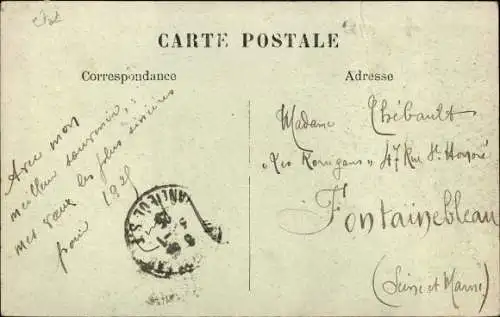 CARTE POSTALE
Correspondance
Adresse
Avec mon
meilleur souvenir,
mes vœux les plus sincères
pour 1925
Madame Thébault
"Les Korrigans" 47 Rue St Honoré
Fontainebleau
(Seine et Marne)